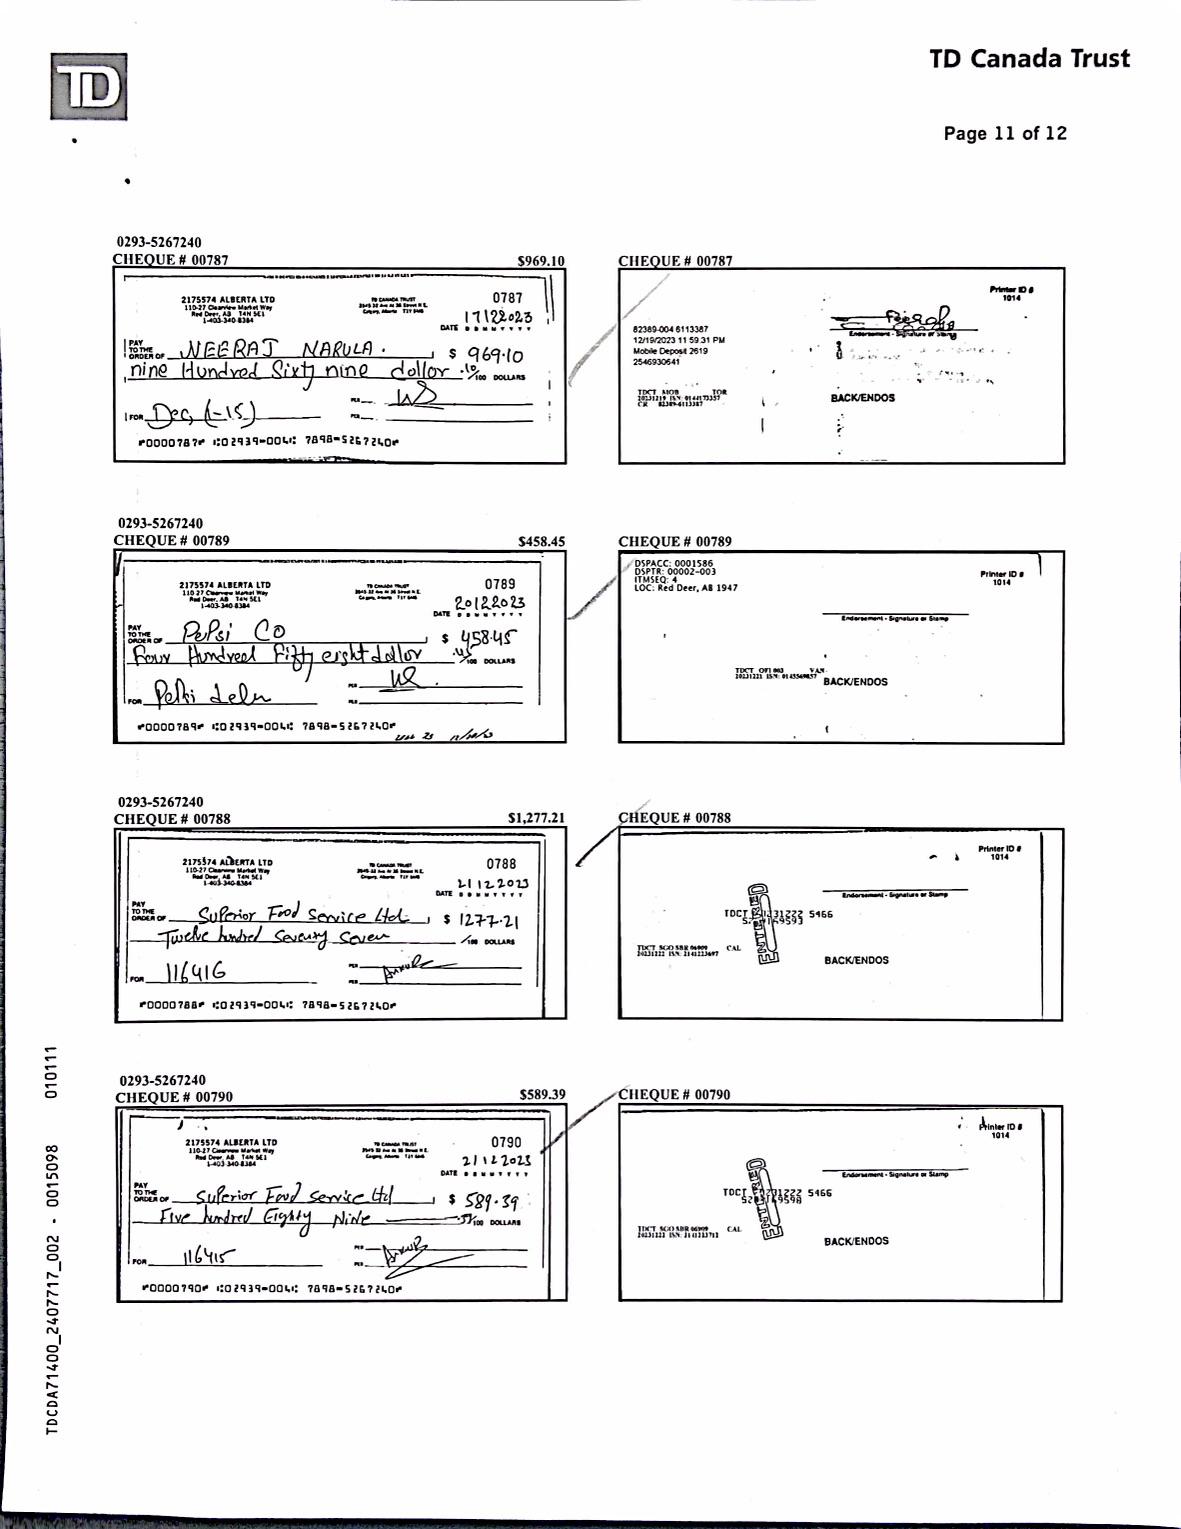 TD
TD Canada Trust
Page 11 of 12
0293-5267240
CHEQUE # 00787 $969.10
2175574 ALBERTA LTD
110-27 Clearview Market Way
Red Deer, AB T4N 5E1
1-403-340-8384
TD CANADA TRUST
0787
17122023
DATE D D M M Y Y Y Y
PAY
TO THE
ORDER OF NEERAJ NARULA. $ 969.10
nine Hundred Sixty nine dollor .10/100 DOLLARS
FOR Dec (1-15)
PER
PER
⑈0000787⑈ ⑆02939⑉004⑆ 7898⑉5267240⑈
CHEQUE # 00787
Printer ID #
1014
82389-004 6113387
12/19/2023 11 59.31 PM
Mobile Deposit 2619
2546930641
Endorsement - Signature or Stamp
TDCT MOB TOR
20231219 ISN: 0144173357
CR 82389-6113387
BACK/ENDOS
0293-5267240
CHEQUE # 00789 $458.45
2175574 ALBERTA LTD
110-27 Clearview Market Way
Red Deer, AB T4N 5E1
1-403-340-8384
TD CANADA TRUST
0789
20122023
DATE D D M M Y Y Y Y
PAY
TO THE
ORDER OF PePsi CO $ 458.45
Four Hundred Fifty eight dollor .45/100 DOLLARS
FOR
PER
PER
⑈0000789⑈ ⑆02939⑉004⑆ 7898⑉5267240⑈
CHEQUE # 00789
DSPACC: 0001586
DSPTR: 00002-003
ITMSEQ: 4
LOC: Red Deer, AB 1947
Printer ID #
1014
Endorsement - Signature or Stamp
BACK/ENDOS
0293-5267240
CHEQUE # 00788 $1,277.21
2175574 ALBERTA LTD
110-27 Clearview Market Way
Red Deer, AB T4N 5E1
1-403-340-8384
TD CANADA TRUST
0788
21122023
DATE D D M M Y Y Y Y
PAY
TO THE
ORDER OF Superior Food Service Ltd. $ 1277.21
Twelve hundred Seventy Seven /100 DOLLARS
FOR 116416
PER
PER
⑈0000788⑈ ⑆02939⑉004⑆ 7898⑉5267240⑈
CHEQUE # 00788
Printer ID #
1014
Endorsement - Signature or Stamp
ENTERED
TDCT SGO SBR 06909 CAL
BACK/ENDOS
0293-5267240
CHEQUE # 00790 $589.39
2175574 ALBERTA LTD
110-27 Clearview Market Way
Red Deer, AB T4N 5E1
1-403-340-8384
TD CANADA TRUST
0790
21122023
DATE D D M M Y Y Y Y
PAY
TO THE
ORDER OF Superior Food Service Ltd $ 589.39
Five hundred Eighty Nine /100 DOLLARS
FOR 116415
PER
PER
⑈0000790⑈ ⑆02939⑉004⑆ 7898⑉5267240⑈
CHEQUE # 00790
Printer ID #
1014
Endorsement - Signature or Stamp
TDCT SGO SBR 06909 CAL
BACK/ENDOS
TDCDA71400_2407717_002 - 0015098 010111